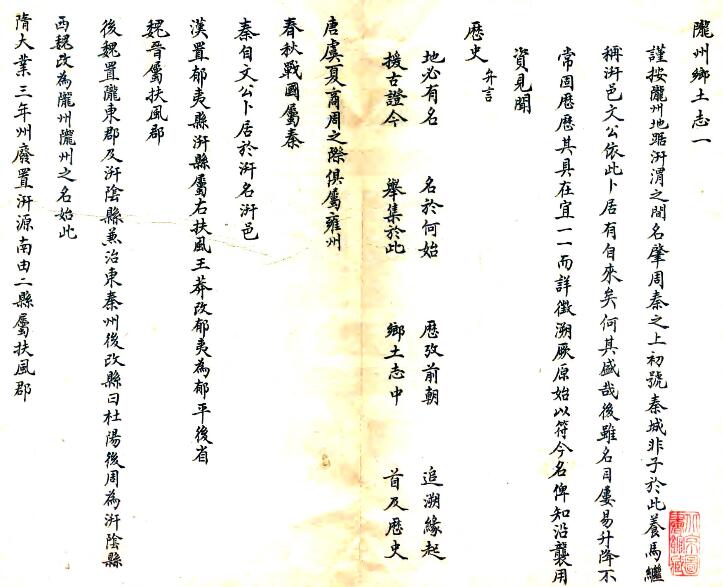 隴州鄉土志一
謹按隴州地踞汧渭之間名肇周秦之上初號秦城非子於此養馬繼
稱汧邑文公依此卜居有自來矣何其盛哉後雖名目屢易升降不
常固歷歷其具在宜一一而詳徵溯厥原始以符今名俾知沿襲用
資見聞
歷史 弁言
地必有名 名於何始 歷攷前朝 追溯緣起
援古證今 舉集於此 鄉土志中 首及歷史
唐虞夏商周之際俱屬雍州
春秋戰國屬秦
秦自文公卜居於汧名汧邑
漢置郁夷縣汧縣屬右扶風王莽改郁夷為郁平後省
魏晉屬扶風郡
後魏置隴東郡及汧陰縣兼治東秦州後改縣曰杜陽後周為汧陰縣
西魏改為隴州隴州之名始此
隋大業三年州廢置汧源南由二縣屬扶風郡